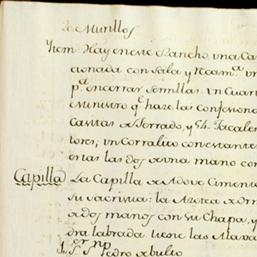 de Murillos
Ytem Hay en este Rancho, una Ca
cionada con Sala y Recam.ª un
p.ª encerrar semillas. un Cuart
Ministro q.e hase las confesione
Casitas de Terrado, y 54. Jacale
tores, un Corralito con estante
ertas las dos de una mano con
Capilla La Capilla de Adove Cimenta
su sacristia: la Azotea de
de dos manos con su Chapa, y
dra labrada. tiene las Alava
Pedro de bulto